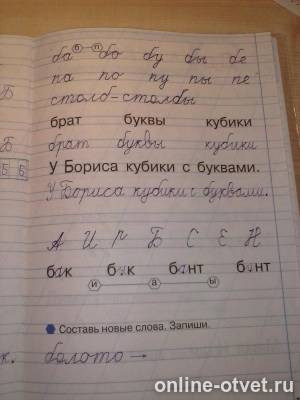 ба б п бо бу бы бе
па по пу пы пе
столб - столбы
брат буквы кубики
брат буквы кубики
У Бориса кубики с буквами.
У Бориса кубики с буквами.
А И Р Б С Е Н
бак бук бант бинт
и а ы
Составь новые слова. Запиши.
болото →
Б
Б
Б Б
к.
online-otvet.ru